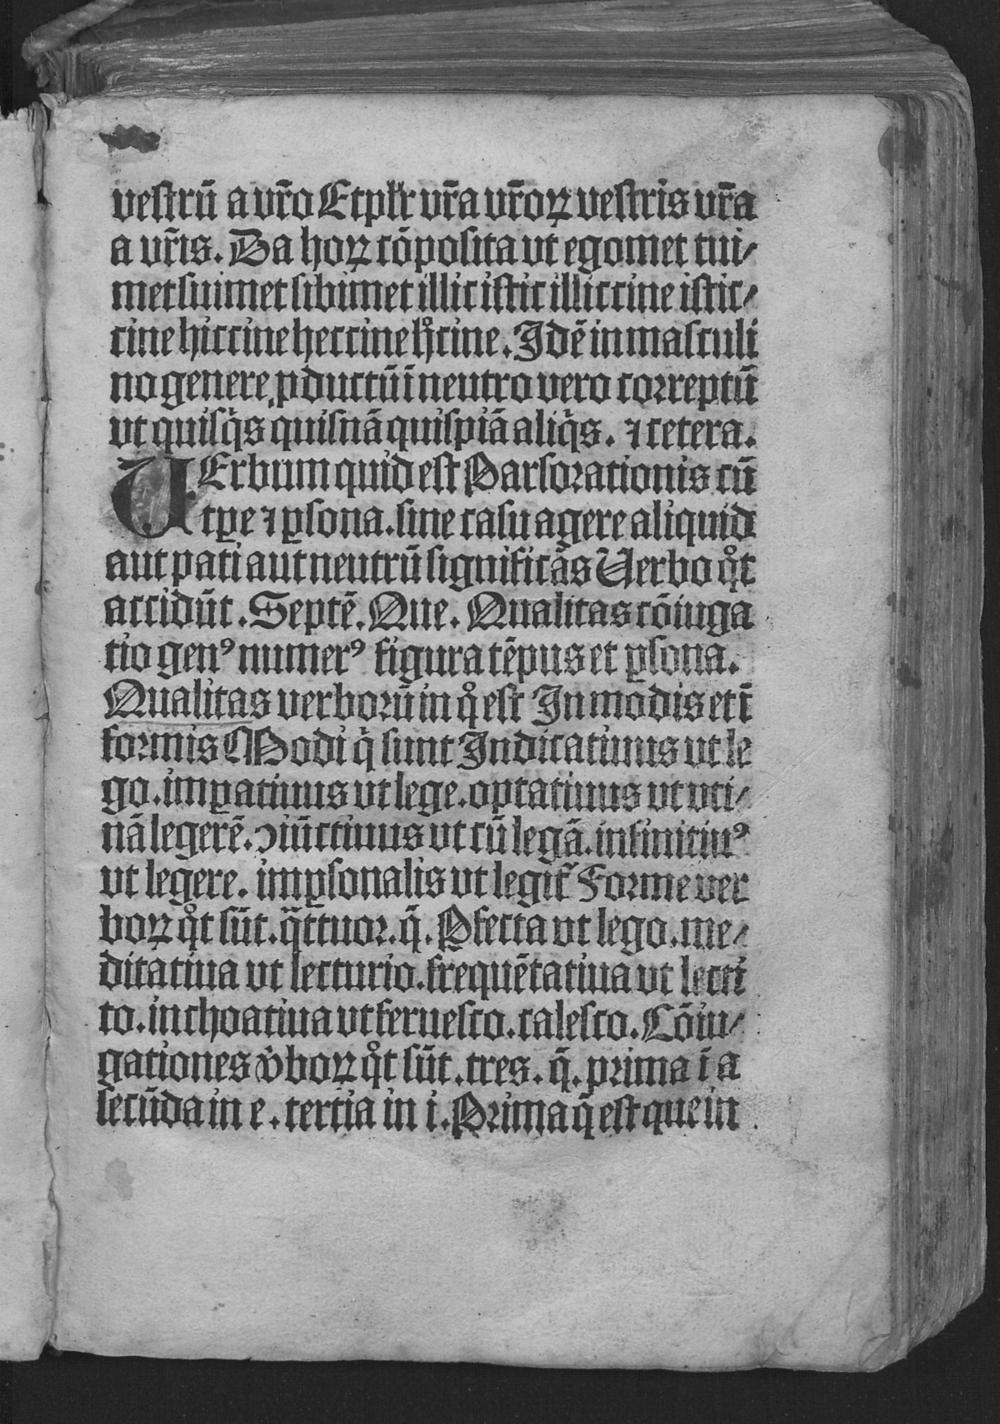 vestrū a vr̄o Et pl̄r vr̄a vr̄oꝝ vestris vr̄a
a vr̄is. Da hoꝝ cōposita vt egomet tui⸗
met suimet sibimet illic istic illiccine istic⸗
cine hiccine heccine hͦcine. Idē in masculi
no genere ꝓductū ī neutro vero correptū
vt quisq̄s quisnā quispiā aliq̄s. ⁊ cetera.
VErbum quid est Pars orationis cū
tꝑe ⁊ ꝑsona. sine casu agere aliquid
aut pati aut neutrū significās Verbo qͦt
accidūt. Septē. Que. Qualitas cōiuga
tio genꝰ numerꝰ figura tēpus et ꝑsona.
Qualitas verborū in qͦ est In modis et ī
formis Modi q̄ sunt Indicatiuus vt le
go. imꝑatiuus vt lege. optatiuus vt vti⸗
nā legerē. ↄiūctiuus vt cū legā. infinitiuꝰ
vt legere. imꝑsonalis vt legit᷑ Forme ver
boꝝ qͦt sūt. q̄ttuor. q̄. Ꝑfecta vt lego. me⸗
ditatiua vt lecturio. frequētatiua vt lecti
to. inchoatiua vt feruesco. calesco. Cōiu⸗
gationes v̓boꝝ qͦt sūt. tres. q̄. prima ī a
secūda in e. tertia in i. Prima q̄ est que in